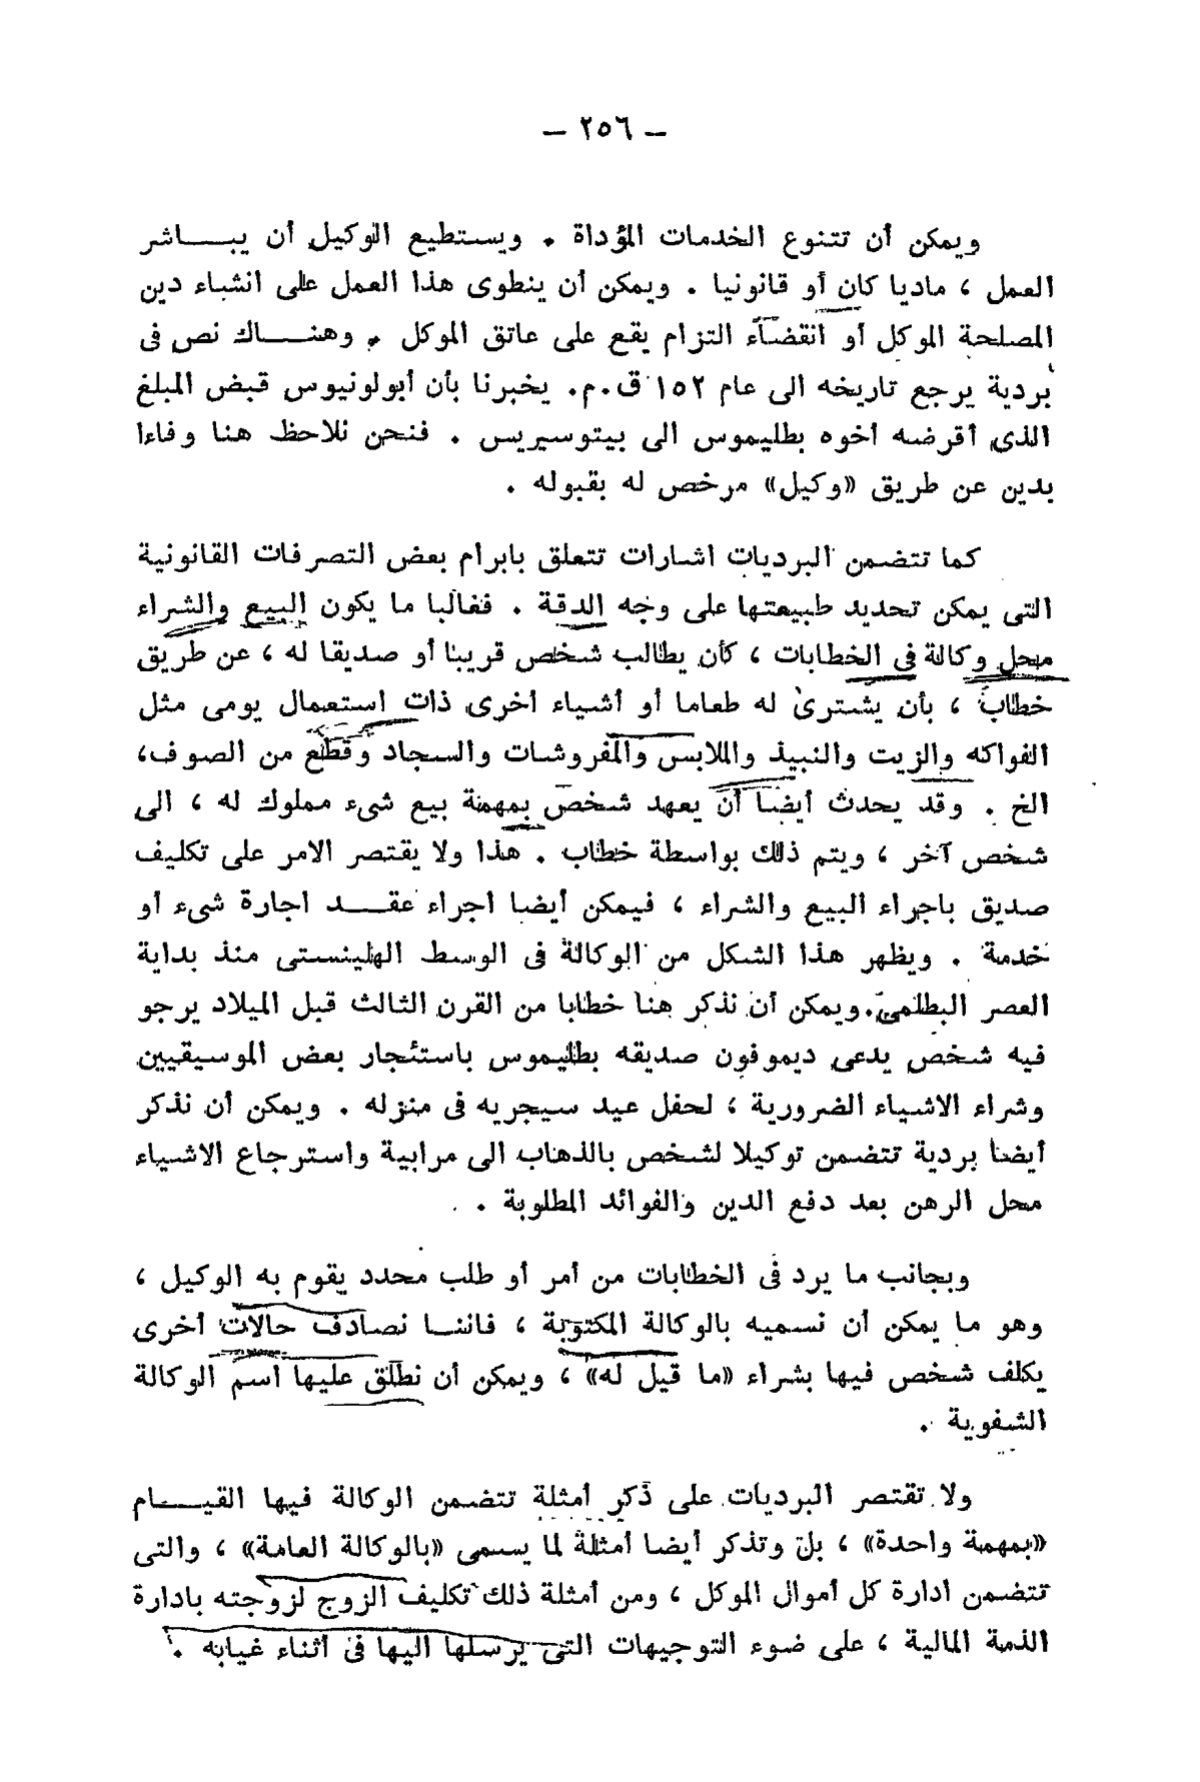 — ٢٥٦ —
ويمكن أن تتنوع الخدمات المؤداة . ويستطيع الوكيل أن يباشر
العمل ، ماديا كان أو قانونيا . ويمكن أن ينطوى هذا العمل على انشاء دين
لمصلحة الموكل أو انقضاء التزام يقع على عاتق الموكل . وهناك نص فى
بردية يرجع تاريخه الى عام ١٥٢ ق.م. يخبرنا بأن أبولونيوس قبض المبلغ
الذى أقرضه أخوه بطليموس الى بيتوسيريس . فنحن نلاحظ هنا وفاءا
بدين عن طريق «وكيل» مرخص له بقبوله .
كما تتضمن البرديات اشارات تتعلق بابرام بعض التصرفات القانونية
التى يمكن تحديد طبيعتها على وجه الدقة . فغالبا ما يكون البيع والشراء
محل وكالة فى الخطابات ، كأن يطالب شخص قريبا أو صديقا له ، عن طريق
خطاب ، بأن يشترى له طعاما أو أشياء أخرى ذات استعمال يومى مثل
الفواكه والزيت والنبيذ والملابس والمفروشات والسجاد وقطع من الصوف،
الخ . وقد يحدث أيضا أن يعهد شخص بمهمة بيع شىء مملوك له ، الى
شخص آخر ، ويتم ذلك بواسطة خطاب . هذا ولا يقتصر الامر على تكليف
صديق باجراء البيع والشراء ، فيمكن أيضا اجراء عقد اجارة شىء أو
خدمة . ويظهر هذا الشكل من الوكالة فى الوسط الهلينستى منذ بداية
العصر البطلمى. ويمكن أن نذكر هنا خطابا من القرن الثالث قبل الميلاد يرجو
فيه شخص يدعى ديموفون صديقه بطليموس باستئجار بعض الموسيقيين
وشراء الاشياء الضرورية ، لحفل عيد سيجريه فى منزله . ويمكن أن نذكر
أيضا بردية تتضمن توكيلا لشخص بالذهاب الى مرابية واسترجاع الاشياء
محل الرهن بعد دفع الدين والفوائد المطلوبة .
وبجانب ما يرد فى الخطابات من أمر أو طلب محدد يقوم به الوكيل ،
وهو ما يمكن أن نسميه بالوكالة المكتوبة ، فاننا نصادف حالات أخرى
يكلف شخص فيها بشراء «ما قيل له» ، ويمكن أن نطلق عليها اسم الوكالة
الشفوية .
ولا تقتصر البرديات على ذكر أمثلة تتضمن الوكالة فيها القيام
«بمهمة واحدة» ، بل وتذكر أيضا أمثلة لما يسمى «بالوكالة العامة» ، والتى
تتضمن ادارة كل أموال الموكل ، ومن أمثلة ذلك تكليف الزوج لزوجته بادارة
الذمة المالية ، على ضوء التوجيهات التى يرسلها اليها فى أثناء غيابه .